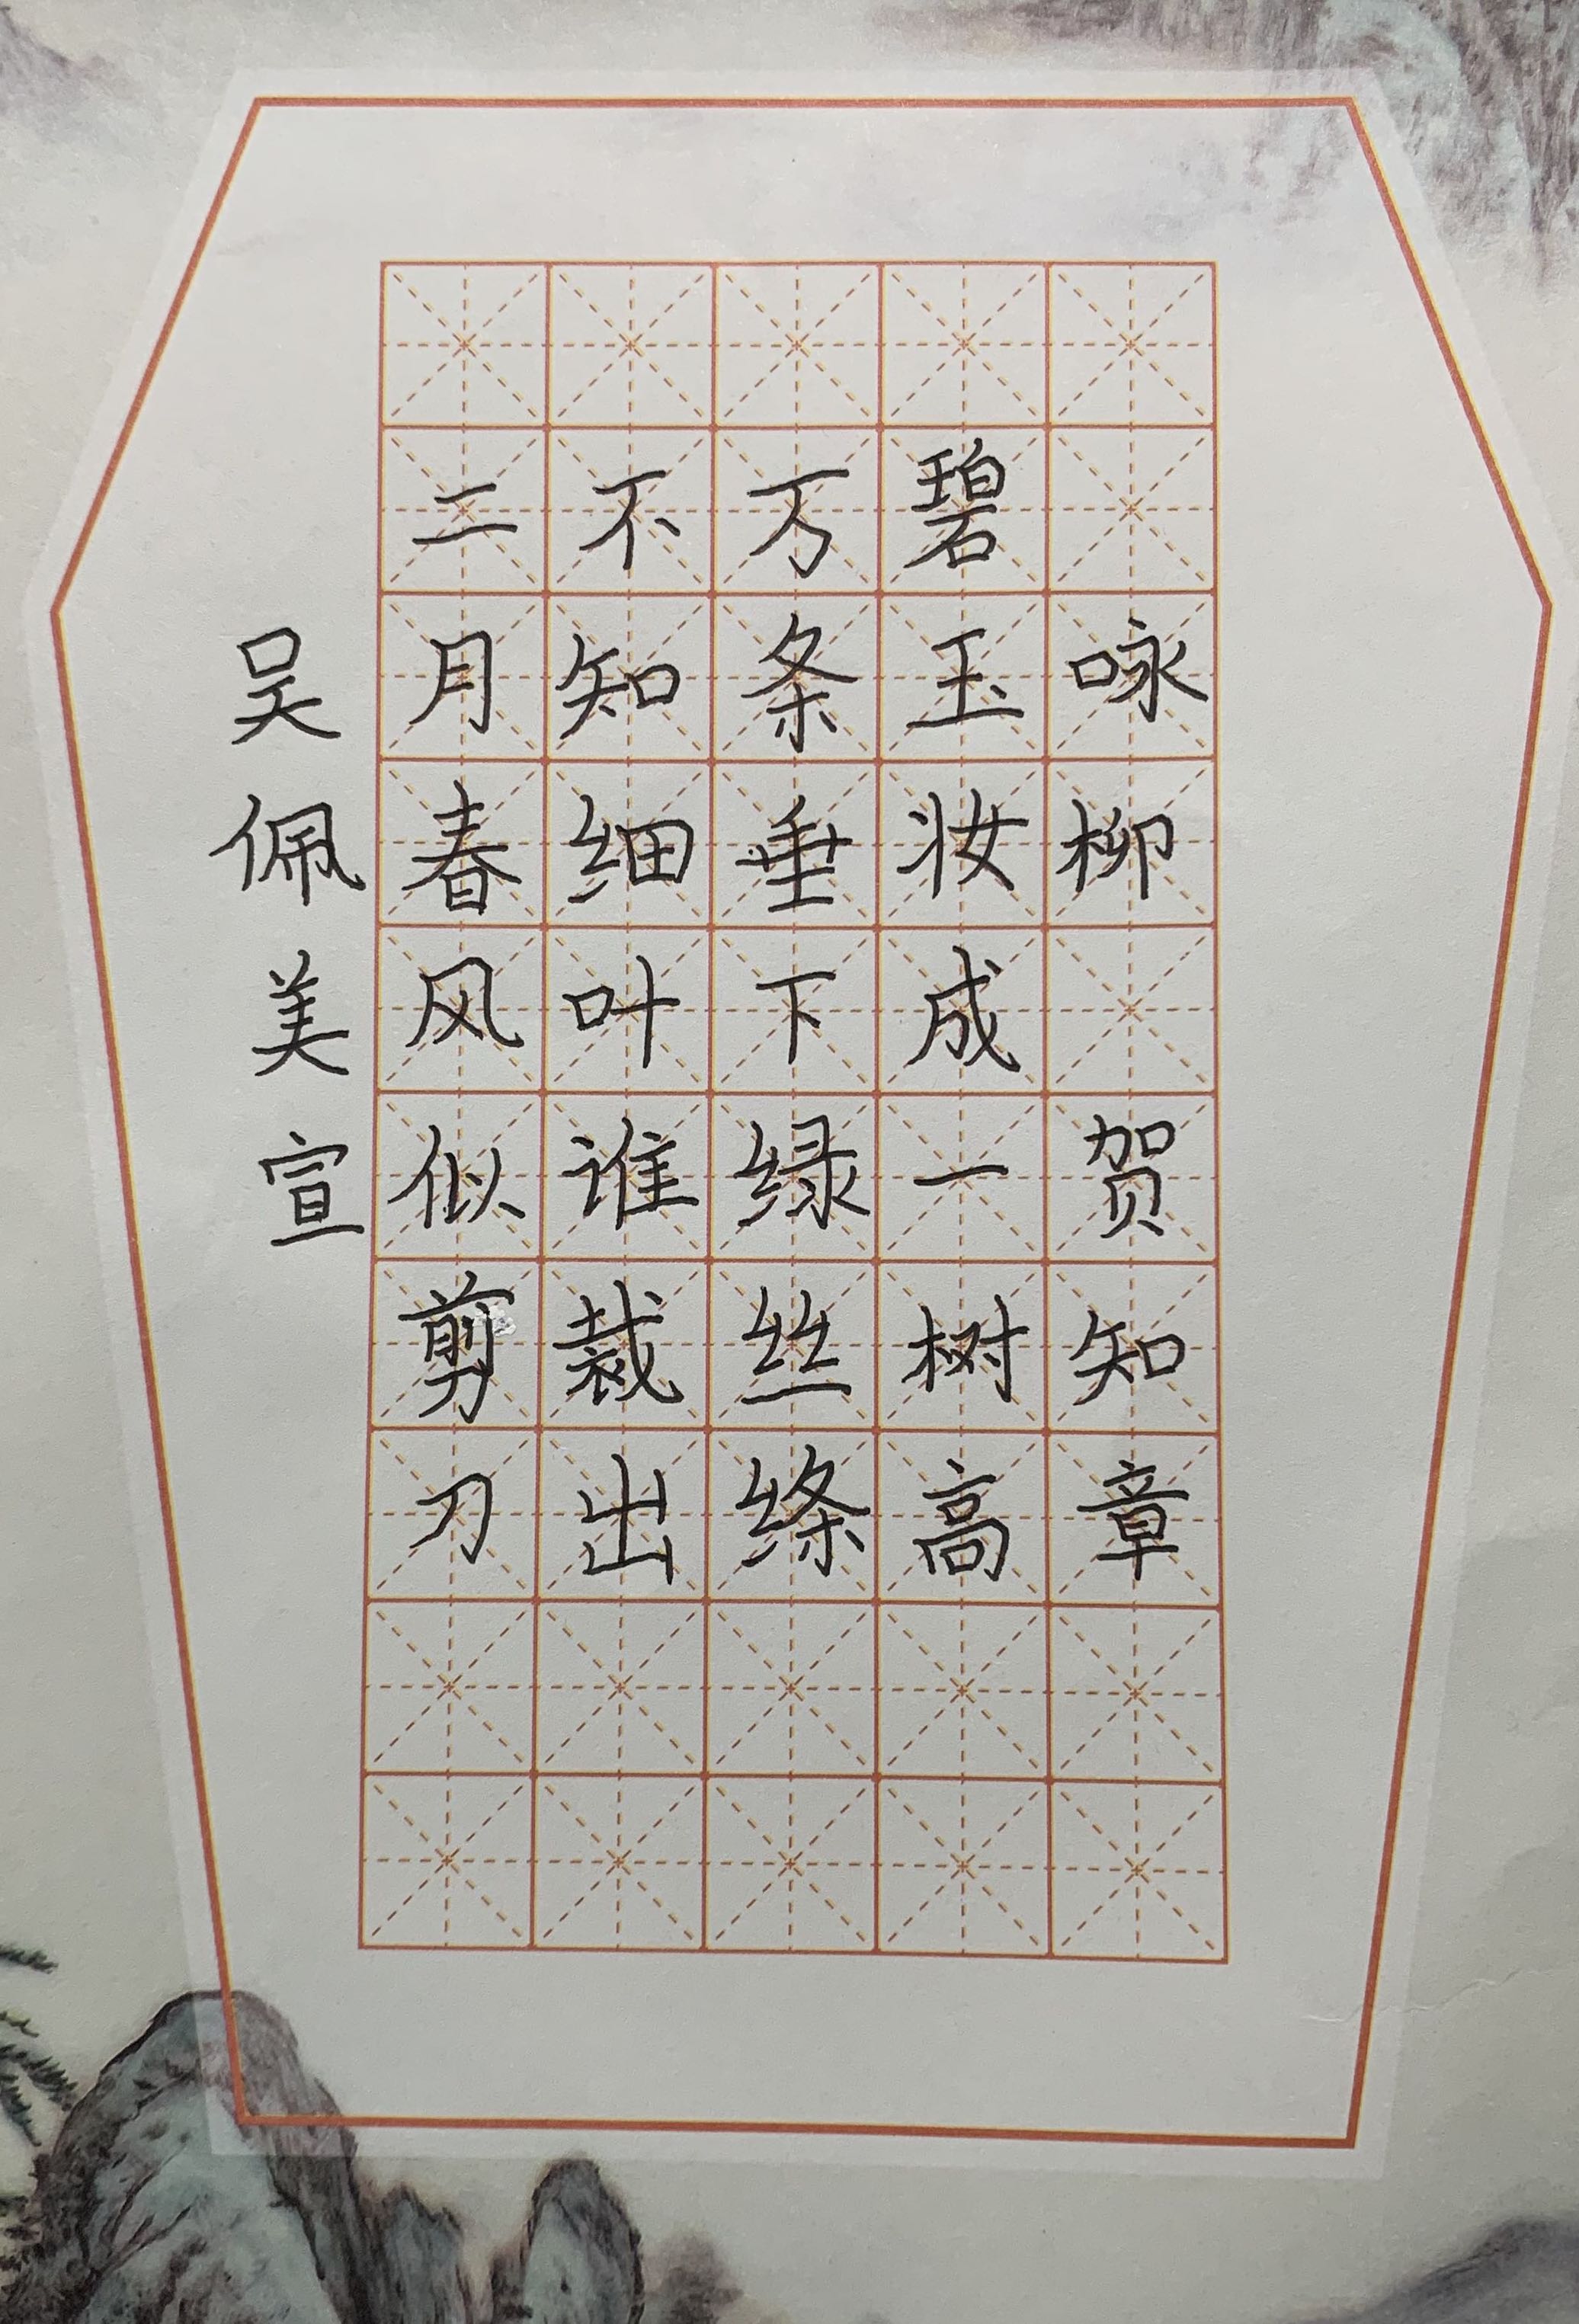 咏柳 贺知章
碧玉妆成一树高
万条垂下绿丝绦
不知细叶谁裁出
二月春风似剪刀
吴佩美宣